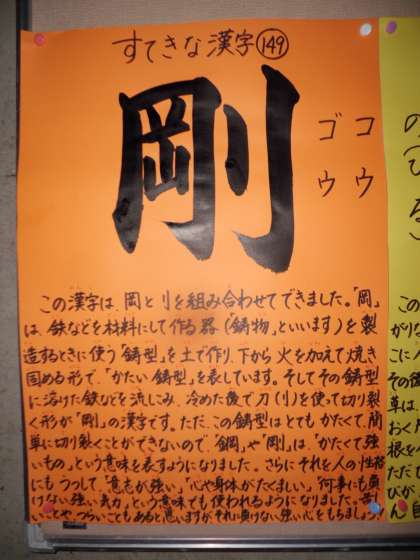 すてきな漢字 149
剛
コウ
ゴウ
この漢字は、岡とリを組み合わせてできました。「岡」
は、鉄などを材料にして作る器(「鋳物」といいます)を製
造するときに使う「鋳型」を土で作り、下から火を加えて焼き
固める形で、「かたい鋳型」を表しています。そしてその鋳型
に溶けた鉄などを流しこみ、冷めた後で刀(リ)を使って切り裂
く形が「剛」の漢字です。ただ、この鋳型はとてもかたくて、簡
単に切り裂くことができないので、「鋼」や「剛」は、「かたくて強
いもの」という意味を表すようになりました。さらにそれを人の性格
にもうつして、「意志が強い」「心や身体がたくましい」「何事にも
負けない強い気力」という意味でも使われるようになりました。苦し
いことやつらいこともあると思いますが、それに負けない強い心をもちましょう。